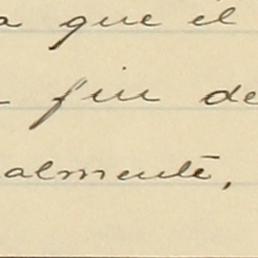 a que él
fin de
almente,